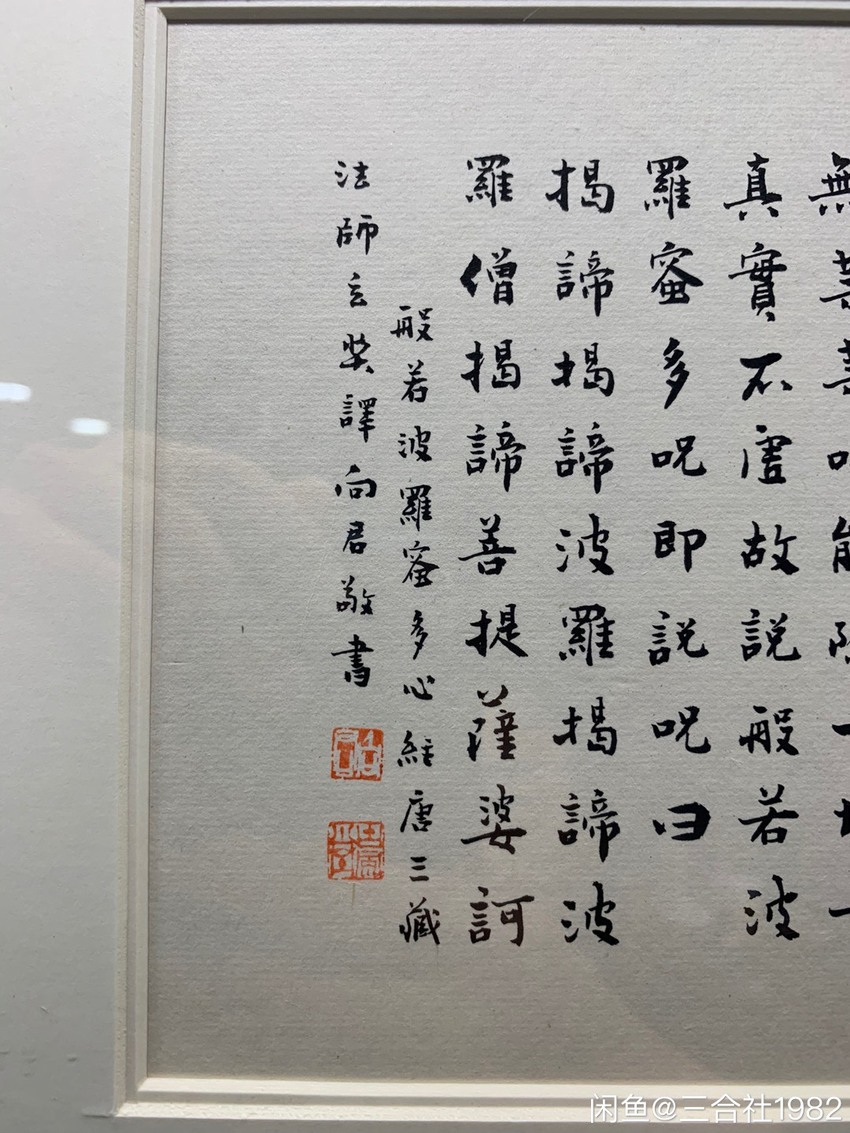 真實不虛故說般若波
羅蜜多呪即說呪曰
揭諦揭諦波羅揭諦波
羅僧揭諦菩提薩婆訶
般若波羅蜜多心經唐三藏
法師玄奘譯向君敬書
闲鱼@三合社1982